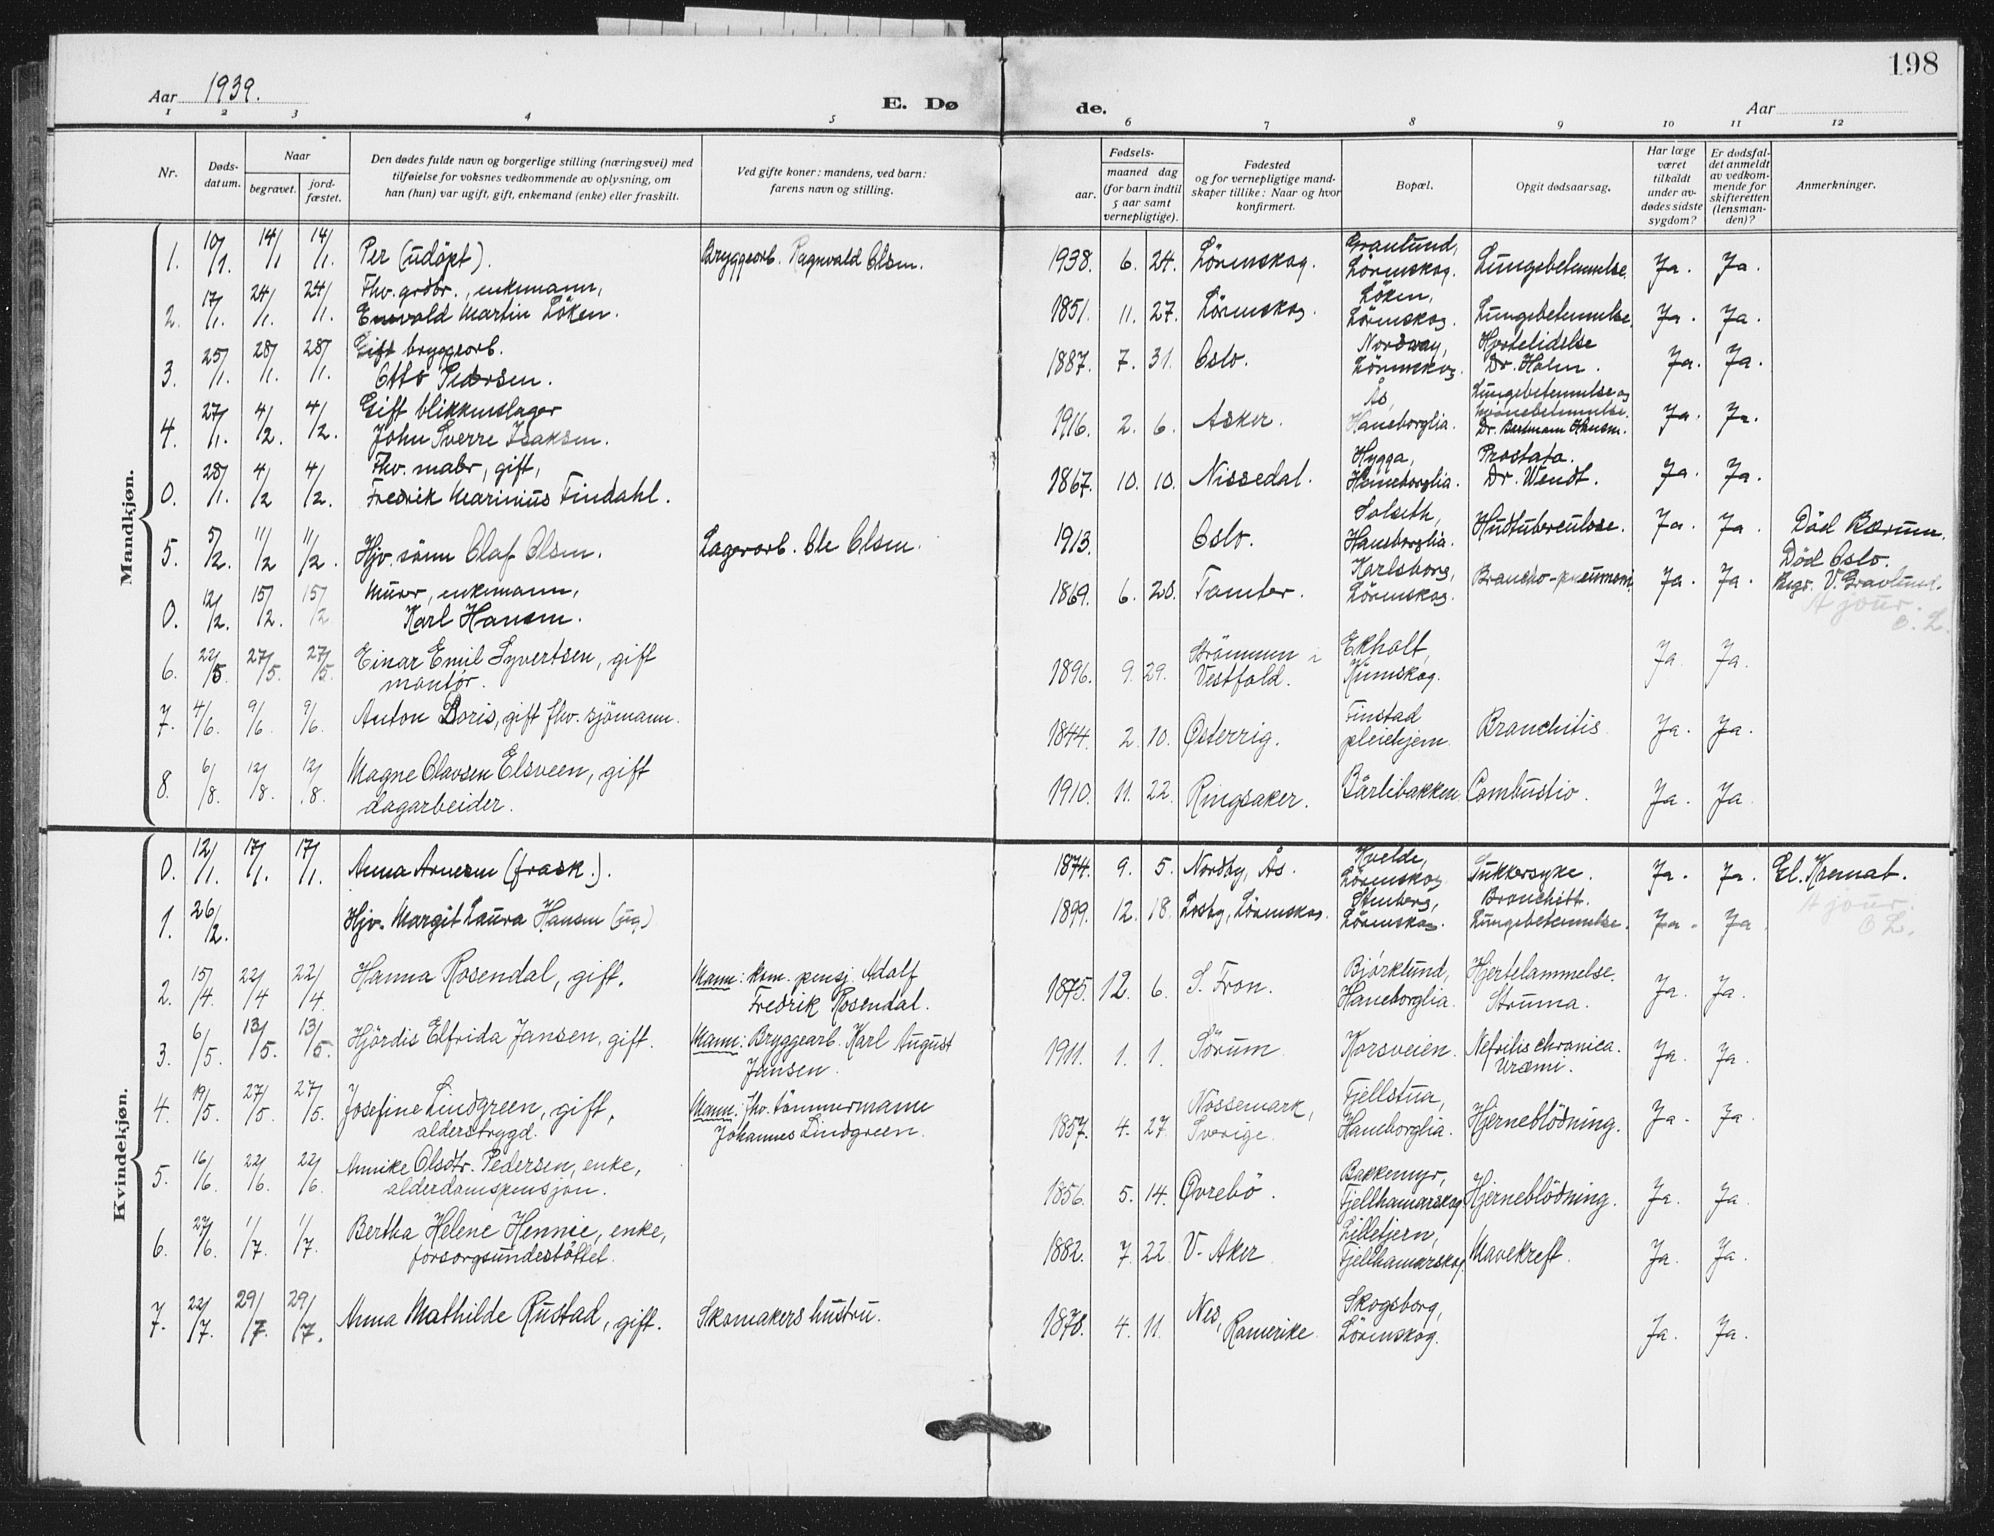 198
Aar 1939.
E. Døde.
Aar
1 2 3 4 5 6 7 8 9 10 11 12
Nr.
Døds-
datum.
Naar
begravet.
jord-
fæstet.
Den dødes fulde navn og borgerlige stilling (næringsvei) med
tilføielse for voksnes vedkommende av oplysning, om
han (hun) var ugift, gift, enkemand (enke) eller fraskilt.
Ved gifte koner: mandens, ved barn:
farens navn og stilling.
Fødsels-
aar.
maaned dag
(for barn indtil
5 aar samt
vernepligtige).
Fødested
og for vernepligtige mand-
skaper tillike: Naar og hvor
konfirmert.
Bopæl.
Opgit dødsaarsag.
Har læge
været
tilkaldt
under av-
dødes sidste
sygdom?
Er dødsfal-
det anmeldt
av vedkom-
mende for
skifteretten
(lensman-
den)?
Anmerkninger.
Mandkjøn.
1. 10/1. 14/1 14/1. Per (udöpt). Bryggearb. Ragnvald Olsen. 1938. 6. 24. Lörenskog. Granlund, Lörenskog. Lungebetennelse. Ja. Ja.
2. 17/1. 24/1. 24/1. Fhv. grdbr., enkemann,
Enevald Martin Löken. 1851. 11. 27. Lörenskog Löken, Lörenskog. Lungebetennelse. Ja. Ja.
3. 25/1. 28/1. 28/1. Gift bryggeorb.
Otto Pedersen. 1887. 7. 31. Oslo. Nordway, Lörenskog. Hjertelidelse Dr. Holm. Ja. Ja.
4. 27/1. 4/2. 4/2. Gift blikkenslager
John Sverre Isaksen. 1916. 2. 6. Asker. Ås, Haneborglia. Lungebetennelse og Dr. Ja. Ja.
0. 28/1. 4/2 4/2. Fhv. maler, gift,
Fredrik Marinius Findahl. 1867. 10. 10. Nissedal. Hygga, Haneborglia. Prostata. Dr. Wendt. Ja. Ja.
5. 5/2. 11/2 11/2. Hjv. sönn Olaf Olsen. Lagerarb. Ole Olsen. 1913. Oslo. Solseth, Haneborglia. Hudtuberculose. Ja. Ja. Död Bærum.
0. 12/2. 15/2. 15/2 Murer, enkemann,
Karl Hansen. 1869. 6. 20. Tomter. Karlsborg, Lörenskog. Broncho-pneumoni Ja. Ja. Död Oslo.
Begr. V. Gravlund.
A jour.
O. L.
6. 22/5 27/5. 27/5. Einar Emil Syvertsen, gift
montör. 1896. 9. 29. Strömmen i Vestfold. Ekholt, Kurnskog. Ja. Ja.
7. 4/6. 9/6. 9/6. Anton Doris, gift fhv. sjömann. 1844. 2. 10. Østerrig. Finstad pleiehjem. Branchitis Ja. Ja.
8. 6/8. 12/8. 12/8. Magne Olavsen Elsveen, gift
dagarbeider. 1910. 11. 22. Ringsaker. Bårlibakken Combustio. Ja. Ja.
Kvindekjøn.
0. 12/1. 17/1. 17/1. Anna Arnesen (frask.). 1874. 9. 5. Nordby, Ås. Kvelde, Lörenskog Sukkersyke. Ja. Ja. El. Kremat.
1. 26/2. Hjv. Margit Laura Hansen (ug.) 1899. 12. 18. Losby, Lörenskog. Stenberg, Lörenskog. Bronchitt. Lungebetennelse. Ja. Ja. A jour.
O L.
2. 15/4. 22/4 22/4 Hanna Rosendal, gift. Mann: kom. pensj. Adolf
Fredrik Rosendal. 1875. 12. 6. S. Fron. Björklund, Haneborglia. Hjertelammelse. Struma. Ja. Ja.
3. 6/5. 13/5. 13/5. Hjördis Elfrida Jansen, gift. Mann: Bryggearb. Karl August
Jansen. 1911. 1. 1. Sörum. Korsveien. Nefritis chronica. Uræmi. Ja. Ja.
4. 19/5. 27/5. 27/5. Josefine Lindgreen, gift,
alderstrygd. Mann: fhv. tömmermann
Johannes Lindgreen. 1857. 4. 27. Nössemark, Sverige. Fjellstua, Haneborglia. Hjerneblödning. Ja. Ja.
5. 16/6. 22/6. 22/6 Annike Olsdtr. Pedersen, enke,
alderdomspensjon. 1856. 5. 14. Øvrebö. Bakkemyr, Fjellhamarskog Hjerneblödning. Ja. Ja.
6. 27/6. 1/7. 1/7. Bertha Helene Hennie, enke,
forsorgsundestöttet. 1882. 7. 22. V. Aker Lilletjern, Fjellhamarskog. Mavekreft. Ja. Ja.
7. 22/7. 29/7. 29/7. Anna Mathilde Rustad, gift. Skomakers hustru. 1878. 4. 11. Nes, Romerike. Skogsborg, Lörenskog. Ja. Ja.